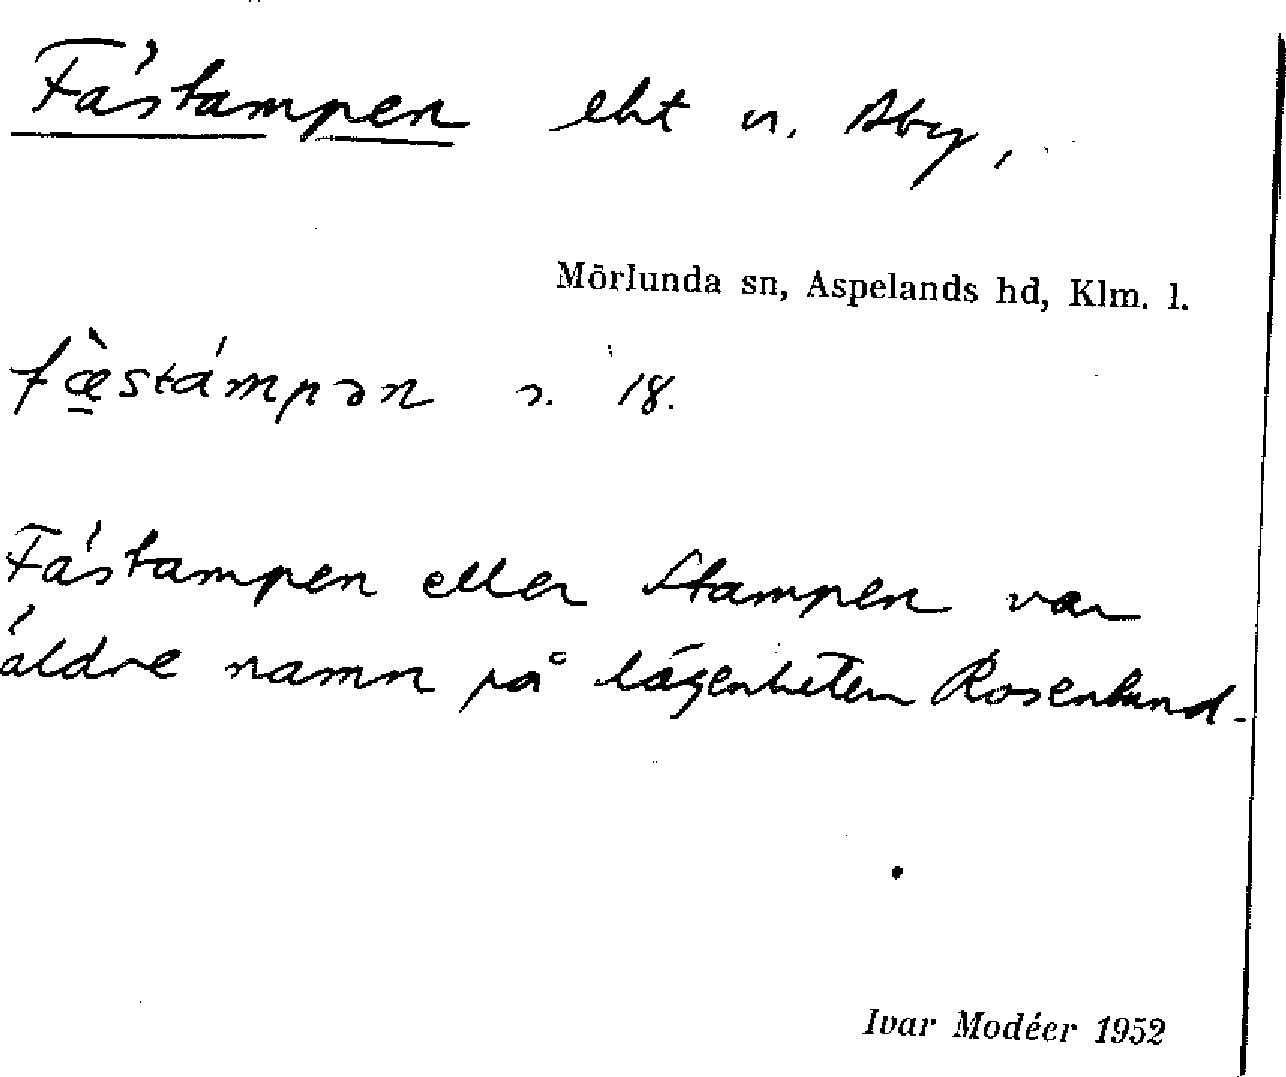 Fästampen lht u. Åby,
Mörlunda sn, Aspelands hd, Klm. l.
fæ̀stámpən s. 18.
Fästampen eller Stampen var
äldre namn på lägenheten Rosenlund.
Ivar Modéer 1952